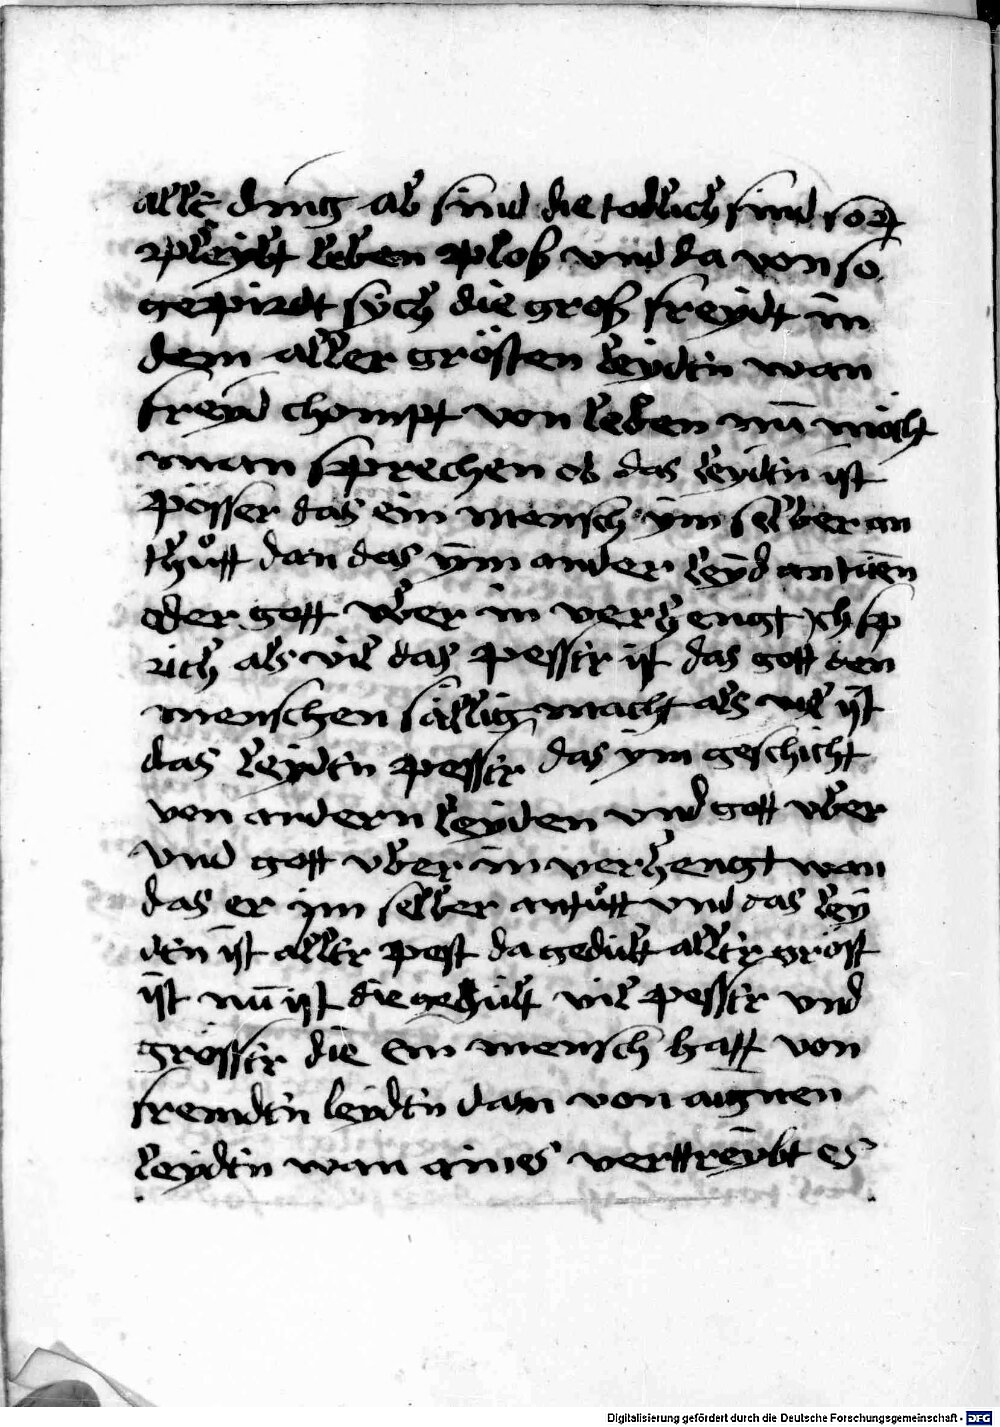 alle ding ab sind die todlich sind so
pleybt leben plos vnd da von so
gepirdt sych die gros freydt in
dem aller grösten leydtn wan
freyd chompt von leben nū möcht
man sprechen ob das leydtn ist
pösser das ein mensch ym selber an
thůtt dan das ym ander leyd an tuen
oder gott vber in verhengt ych sp
rich als vil das pesser ist das gott den
menschen sällig macht als vil ist
das leydtn pesser das ym geschicht
von andern leyden vnd gott vber
vnd gott vber in verhengt wan
das er im selber antůtt vnd das ley
dtn ist aller pest da gedult aller gröst
ist nū ist die gedult vil pesser vnd
grösser die ein mensch hatt von
fremdtn leydtn dan von aignen
leydtn wan aines verttreybt es
Digitalisierung gefördert durch die Deutsche Forschungsgemeinschaft - DFG